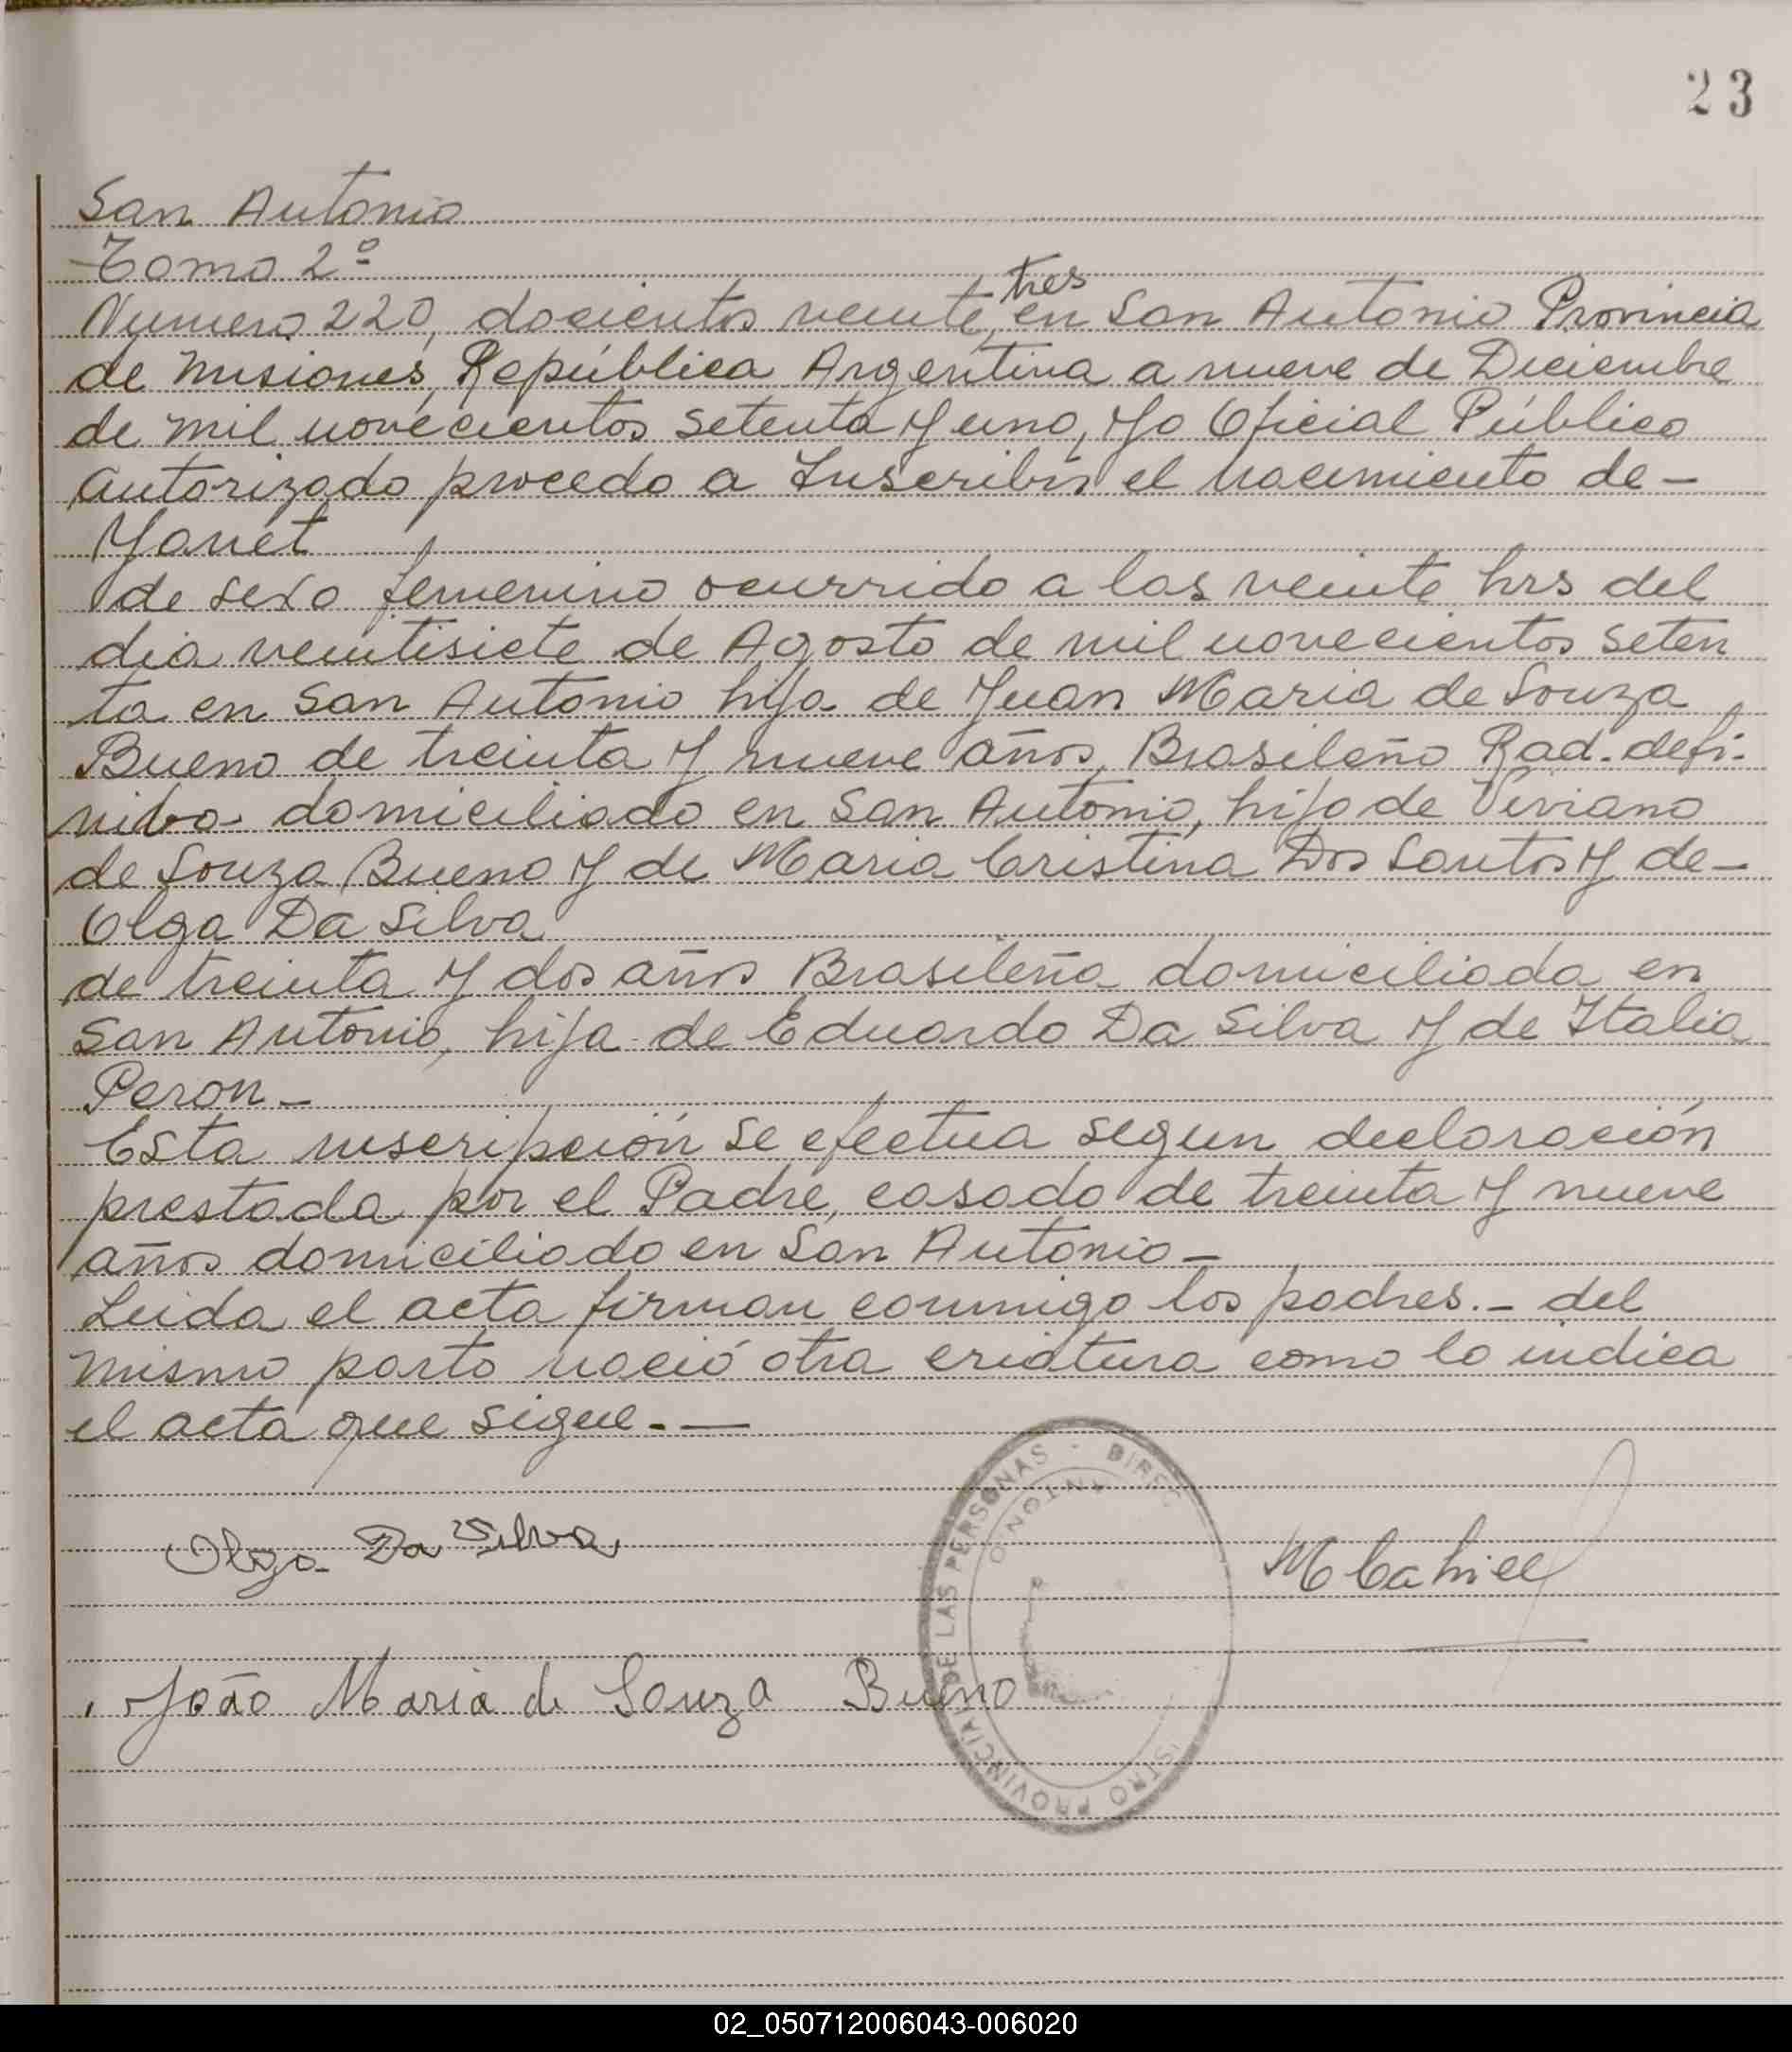 23
San Antonio
Tomo 2º
Numero 220, docientos veinte, tres en San Antonio Provincia
de Misiones, República Argentina a nueve de Diciembre
de mil novecientos setenta y uno, yo Oficial Público
autorizado procedo a Inscribir el nacimiento de -
Yanet
de sexo femenino ocurrido a las veinte hrs del
dia veintisiete de Agosto de mil novecientos seten
ta en San Antonio hija de Juan Maria de Souza
Bueno de treinta y nueve años, Brasileño Rad. defi-
nitva domiciliado en San Antonio, hijo de Viviano
de Souza Bueno y de Maria Cristina Dos Santos y de -
Olga Da Silva
de treinta y dos años Brasileña domiciliada en
San Antonio, hija de Eduardo Da Silva y de Italia
Peron -
Esta inscripción se efectua segun declaración
prestada por el Padre, casado de treinta y nueve
años domiciliado en San Antonio -
Leida el acta firman conmigo los padres. - del
mismo parto nació otra criatura como lo indica
el acta que sigue. -
Olga Da Silva
M Cahiel
João Maria de Souza Bueno
ISTRO PROVINCIAL DE LAS PERSONAS - DIREC
ANTONIO
02_050712006043-006020